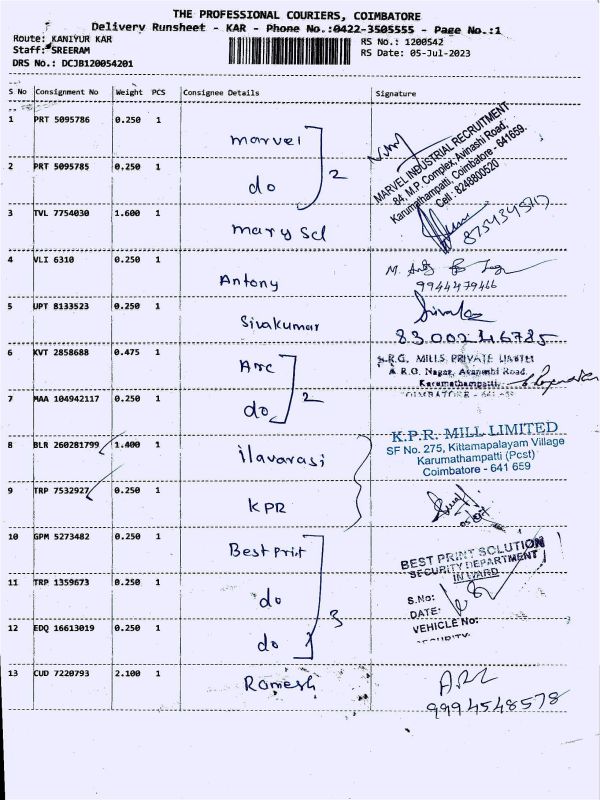 THE PROFESSIONAL COURIERS, COIMBATORE
Delivery Runsheet - KAR - Phone No.:0422-3505555 - Page No.:1
Route: KANIYUR KAR
RS No.: 1200542
Staff: SREERAM
RS Date: 05-Jul-2023
DRS No.: DCJB120054201
S No Consignment No Weight PCS Consignee Details Signature
1 PRT 5095786 0.250 1 marvel
2 PRT 5095785 0.250 1 do 2
MARVEL INDUSTRIAL RECRUITMENT
84, M.P. Complex, Avinashi Road,
Karumathampatti, Coimbatore - 641659.
Cell : 8248800520
3 TVL 7754030 1.600 1 mary scl
4 VLI 6310 0.250 1 Antony
9944479466
5 UPT 8133523 0.250 1 Sivakumar
8300246785
6 KVT 2858688 0.475 1 Arc
MILLS PRIVATE LIMITED
Nagar, Road,
Karumathampatti,
COIMBATORE - 641 659
7 MAA 104942117 0.250 1 do 2
8 BLR 260281799 1.400 1 ilavarasi
K.P.R. MILL LIMITED
SF No. 275, Kittamapalayam Village
Karumathampatti (Post)
Coimbatore - 641 659
9 TRP 7532927 0.250 1 KPR
10 GPM 5273482 0.250 1 Best Print
BEST PRINT SOLUTION
SECURITY DEPARTMENT
IN WARD
11 TRP 1359673 0.250 1 do
S.No:
DATE:
12 EDQ 16613019 0.250 1 do 3
VEHICLE No:
SECURITY
13 CUD 7220793 2.100 1 Romesh
9994548578